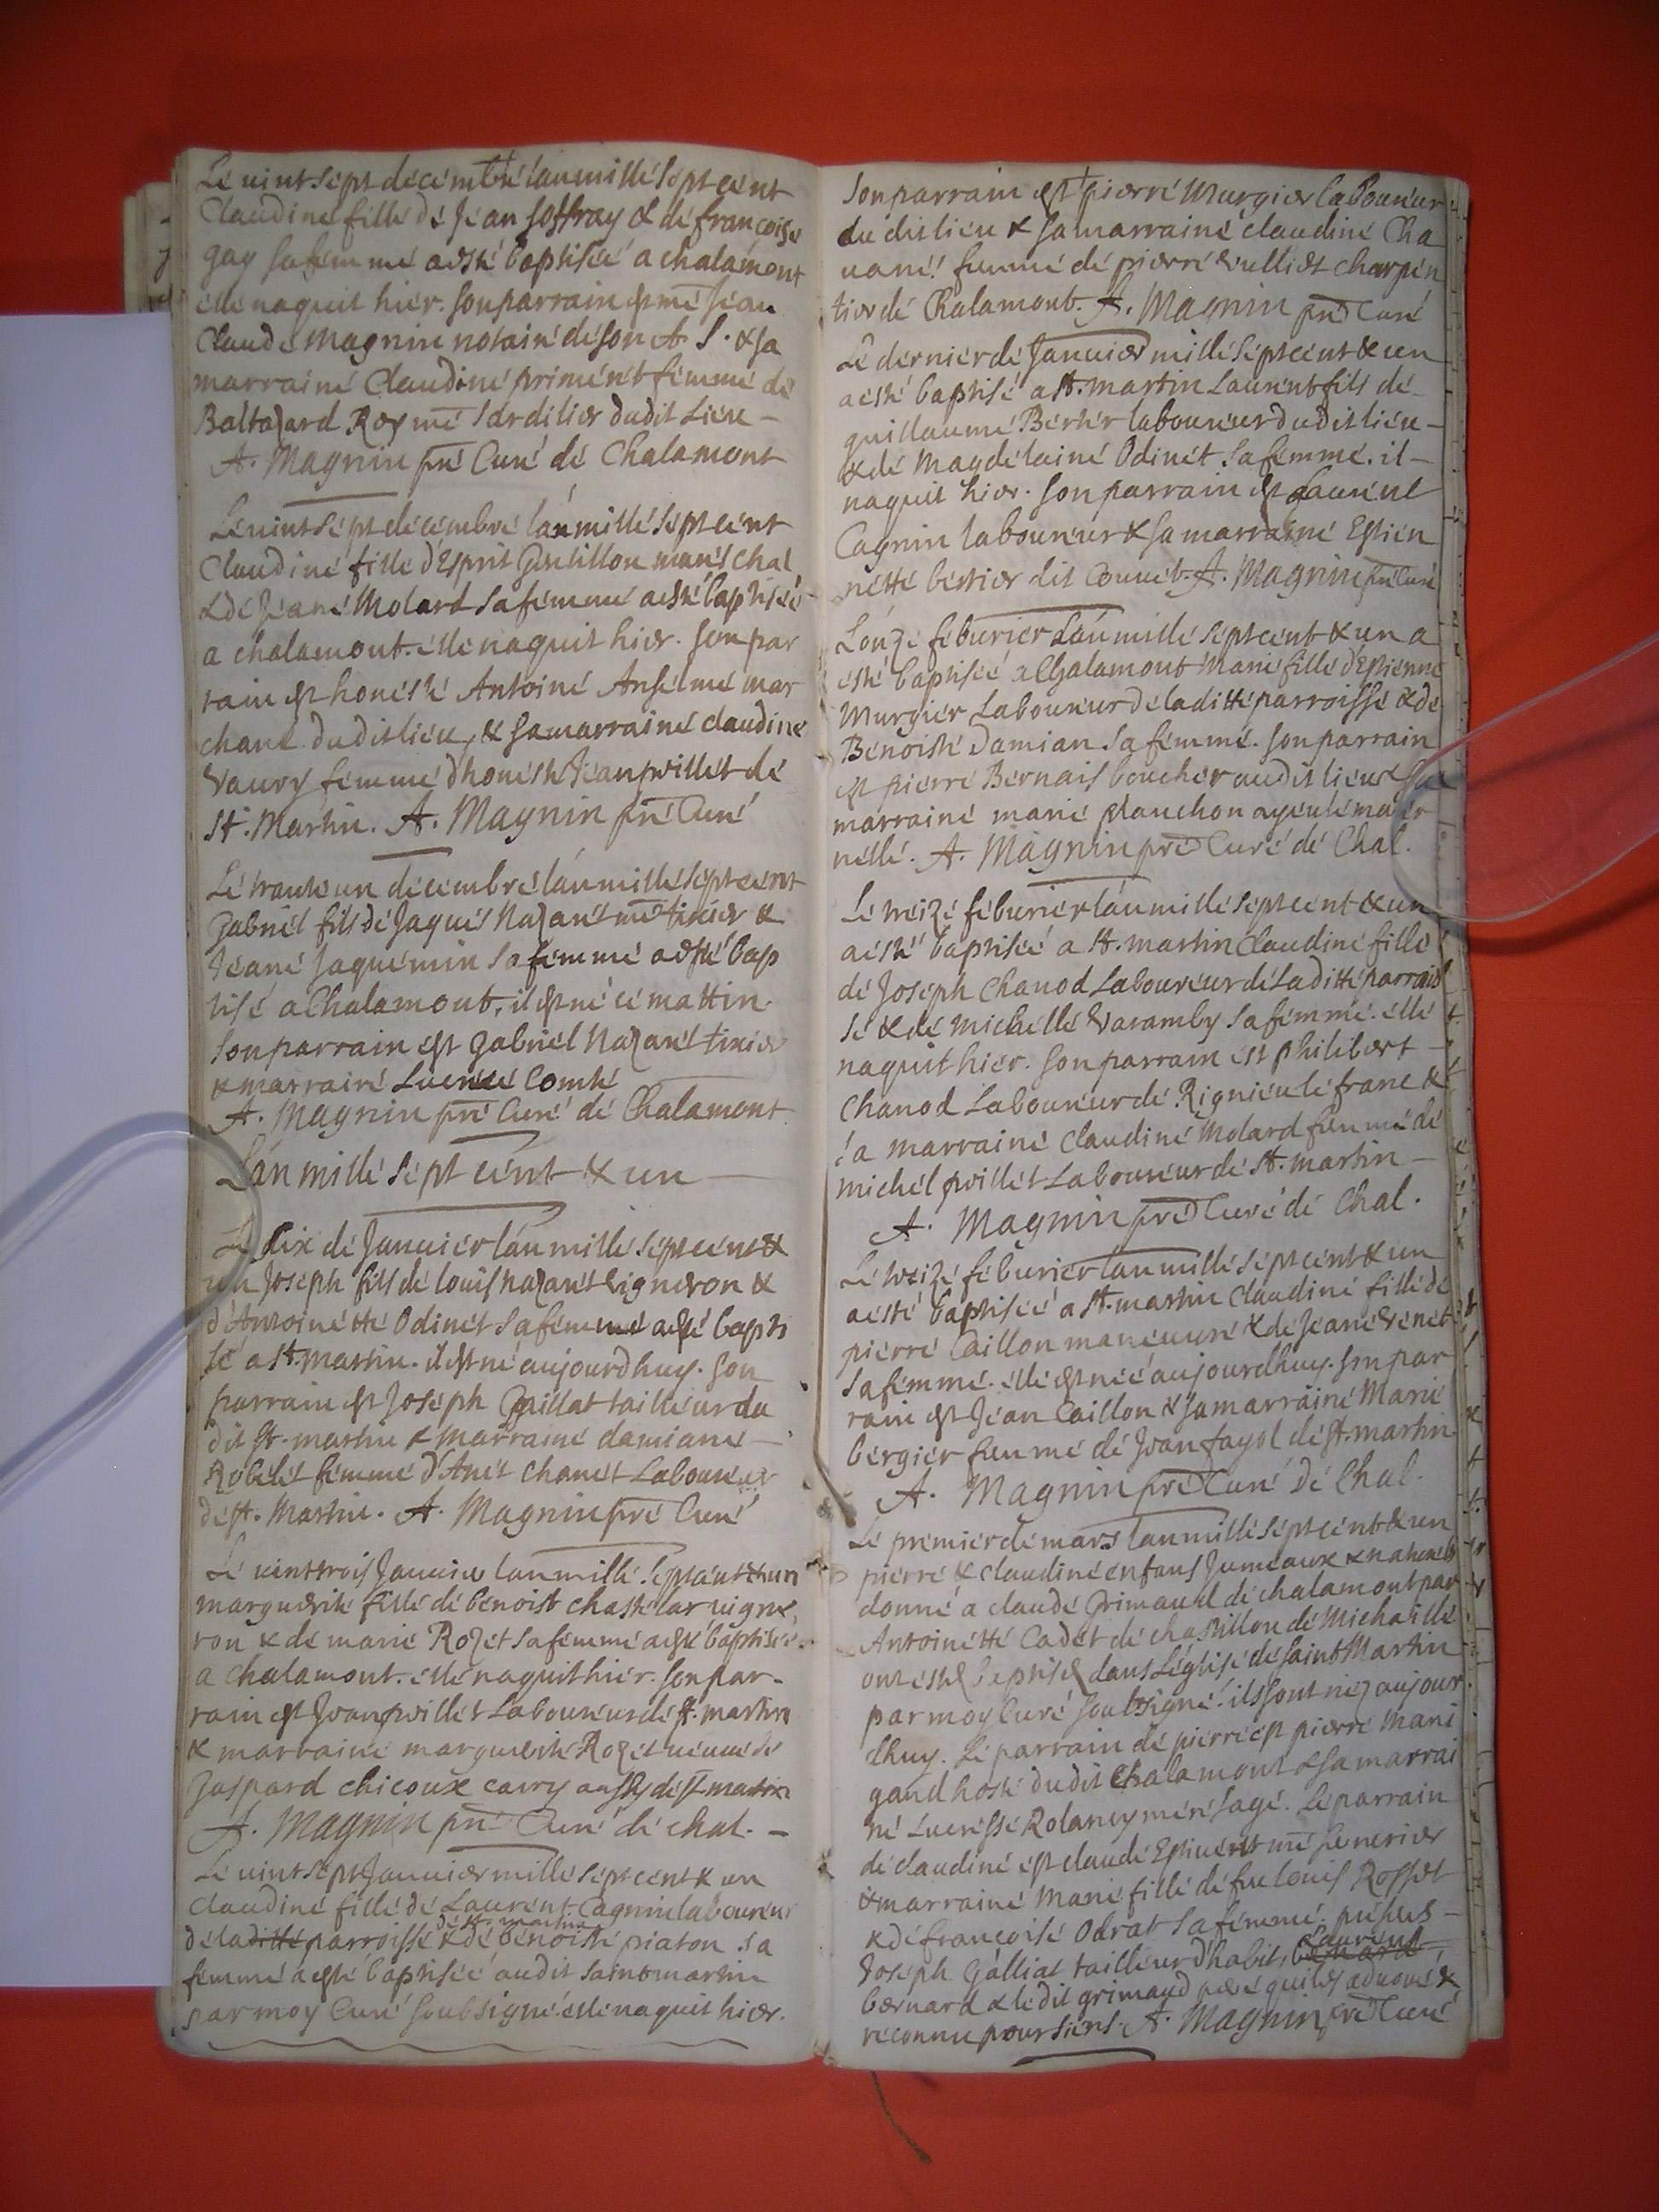 Le vint sept decembre lan mille sept cent
Claudine fille de Jean soffray & de françoise
gay sa femme a esté baptisée a chalamont
elle naquit hier. son parrain est me Jean
Claude magnin notaire de son A. S. & sa
marraine Claudine priment femme de
Baltazard Rey me dudit Lieu
A. Magnin pre Curé de Chalamont
Le vint sept decembre lan mille sept cent
Claudine fille d'Esprit Gentillon mareschal
& de Jeane Molard sa femme a esté baptisée
a chalamont. elle naquit hier. son par
rain est honeste Antoine Anselme mar
chant dudit lieu, & sa marraine claudine
Vaury femme d'honeste Jean pvillet de
St. Martin. A. Magnin pre Curé
Le trante un decembre lan mille sept cent
Gabriel fils de Jaques Nazaret me tixier &
Jeane Jaquemin sa femme a esté bap
tisé a Chalamont, il est né ce mattin.
son parrain est Gabriel Nazaret tixier
& marraine Lucrece Comte
A. Magnin pre Curé de Chalamont
L'an mille sept cent & un
Le dix de Janvier lan mille sept cent &
un Joseph fils de louis Nazaret vigneron &
d'Antoinette Odinet sa femme a esté bapti
sé a St. martin. il est né aujourdhuy. son
parrain est Joseph Gaillat tailleur du
dit St. martin & marraine damiane
Robelet femme d'Anet chanet Laboureur
de St. Martin. A. Magnin pre Curé
Le vint trois Janvier lan mille sept cent & un
marguerite fille de benoist chastelar vigne
ron & de marie Rozet sa femme a esté baptisée
a Chalamont. elle naquit hier. son par-
rain est Jean pvillet Laboureur de St. martin
& marraine marguerite Rozet veuve de
Gaspard chicoux carry aussy de St martin
A. Magnin pre Curé de chal.
Le vint sept Janvier mille sept cent & un
claudine fille de Laurent Cagnin laboureur
de St. martin
de laditte parroisse & de benoiste piaton sa
femme a esté baptisée audit saint martin
par moy Curé soubsigné. elle naquit hier.
son parrain est pierre Murgier laboureur
du dit lieu & sa marraine claudine Cha
vane femme de pierre Vulliet charpen
tier de Chalamont. A. Magnin pre Curé
Le dernier de Janvier mille sept cent & un
a esté baptisé a St. martin Laurent fils de
guillaume Berter laboureur dudit lieu
& de Magdelaine Odinet sa femme. il
naquit hier. son parrain est Laurent
Cagnin laboureur & sa marraine Estien
nette bestier dit Couvet. A. Magnin pre Curé
L'onze feburier Lan mille sept cent & un a
esté baptisée a Chalamont Marie fille d'Estienne
Murgier Laboureur de laditte parroisse & de
Benoiste Damian sa femme. son parrain
est pierre Bernais boucher audit lieu & sa
marraine marie planchon ayeule mater
nelle. A. Magnin pre Curé de Chal.
Le treize feburier lan mille sept cent & un
a esté baptisée a St. martin Claudine fille
de Joseph Chanod Laboureur de Laditte parrois
se & de michelle Varamby sa femme. elle
naquit hier. son parrain est philibert
Chanod Laboureur de Rignieu le franc &
sa marraine Claudine Molard femme de
michel pvillet Laboureur de St. martin
A. Magnin pre Curé de Chal.
Le treize feburier lan mille sept cent & un
a esté baptisée a St. martin Claudine fille de
pierre Caillon maneuvre & de Jeane Venet
sa femme. elle est née aujourdhuy. son par
rain est Jean Caillon & sa marraine Marie
bergier femme de Jean fayol de St. martin
A. Magnin pre Curé de Chal.
Le premier de mars lan mille sept cent & un
pierre & claudine enfans Jumeaux & naturels
donné a claude Grimaud de chalamont par
Antoinette Cadet de chastillon de Michaille
ont estes baptises dans Léglise de Saint Martin
par moy Curé soubsigné. ils sont nez aujour
dhuy. Le parrain de pierre est pierre Mari
gand hoste dudit Chalamont & sa marrai
ne Lucresse Rolancy mere sage. Le parrain
de claudine est claude me
& marraine Marie fille de feu louis Rosset
& de françoise Odrat sa femme. presens
Laurent
Joseph Galliat tailleur d'habits, bernard
bernard & ledit grimaud pere qui les a advoué &
reconnu pour siens. A. Magnin pre Curé